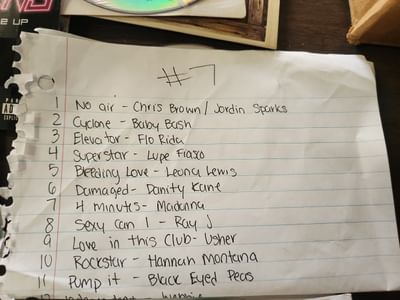 E UP
#7
1 No air - Chris Brown / Jordin Sparks
2 Cyclone - Baby Bash
3 Elevator - Flo Rida
4 Superstar - Lupe Fiasco
5 Bleeding Love - Leona Lewis
6 Damaged - Danity Kane
7 4 minutes - Madonna
8 Sexy can I - Ray J
9 Love in this Club - Usher
10 Rockstar - Hannah Montana
11 Pump it - Black Eyed Peas